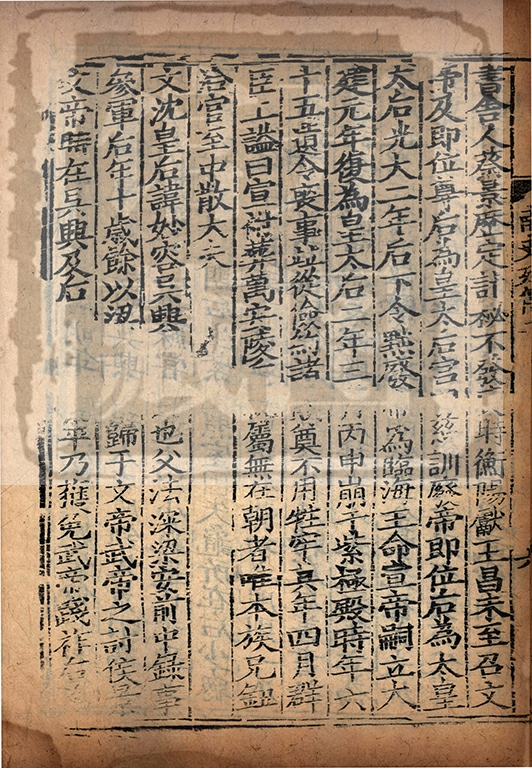 書舍人蔡景歷定計秘不發 時衡陽獻王昌未至召文
帝及即位尊后為皇太后宮 慈訓廢帝即位后為太皇
太后光大二年后下令黜廢 帝為臨海王命宣帝嗣立大
建元年復為皇太后二年三 月丙申崩于紫極殿時年六
十五遺令喪事並從儉約諸 奠不用牲牢其年四月群
臣上謚曰宣 祔葬萬安陵 屬無在朝者唯本族兄鈕
洽官至中散大夫
文沈皇后諱妙容吳興 也父法深梁安前中錄事
參軍后年十歲餘以梁 歸于文帝武帝之討侯景
文帝時在吳興及后 乃獲免武帝踐祚